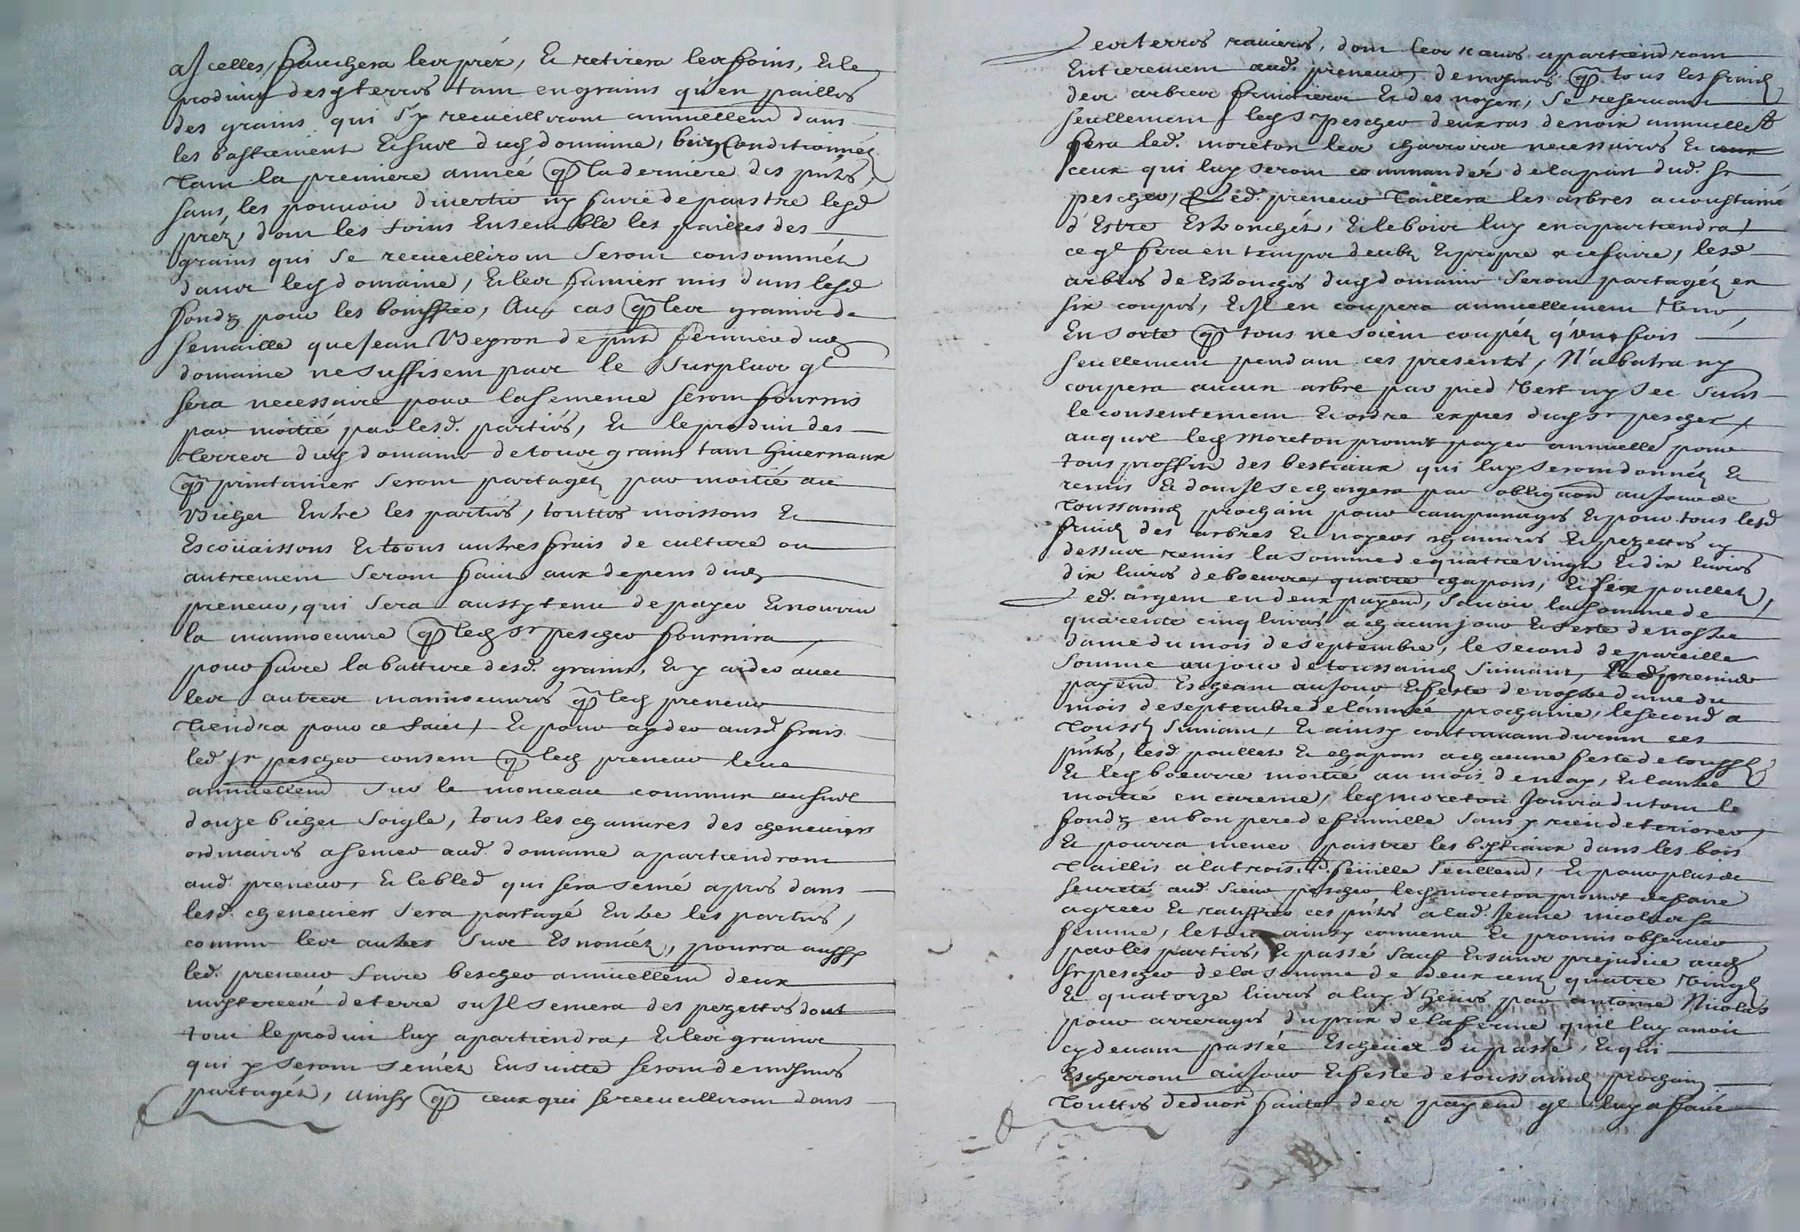 a Jcelles, fauchera les préz, Et retirera les foins, Et le
produict desd terres tant en grains qu'en pailles
des grains qui s'y recueilliront annuellemt dans
les bastiement Et suol dud domaine, bien Conditionnéz
tant la premiere année q la derniere des pntes,
sans les pouvoir divertir ny faire depaistre lesd
préz, dont les foins Ensemble les pailles des
grains qui se recueilliront seront consomméz
dans led domaine, Et les fumiers mis dans lesd
fondz pour les bonifier, Au cas q les grains de
semaille que Jean Veyron depnt fermier dud
domaine ne suffisent pour le surplus ql
sera necessaire pour la semence seront fournis
par moitié par lesd. parties, Et le produit des
terres dud domaine de tous grains tant hivernaux
q printaniers seront partagéz par moitié au
bichet Entre les parties, touttes moissons Et
Escoüaissons Et tous autres frais de culture ou
autrement seront faits aux depens dud
preneur, qui sera aussy tenu de payer Et nourrir
la mannoeuvre q led sr pescher fournira
pour faire la batture desd. grains, Et y aider avec
les autres mannoeuvres q led preneur
tiendra pour ce faict, Et pour aydér ausd frais
led. sr pescher consent q led preneur leve
annuellemt sur le monceau commun au suol
douze bichet soigle, tous les chanvres des cheneviers
ordinaires a semer aud. domaine apartiendront
aud. preneur, Et le bled qui sera semé aprés dans
lesd. chenevier sera partagé Entre les parties,
comme les autres sus Enoncéz, pourra aussy
led. preneur faire bescher annuellemt deux
mesterées de terre ou Jl semera des pezettes dont
tout le produit luy apartiendra, Et les grains
qui y seront seméz Ensuitte seront de mesmes
partagéz, ainsy q ceux qui se recueilliront dans
les terres ravieres, dont les raves apartiendront
Entierement aud. preneur, de mesmes q tous les fruicts
des arbres fruitiers Et des noyers, se reservant
seullement led sr pescher deux ras de noix annuellet
fera led. moreton les charrois necessaires Et
ceux qui luy seront commandés de la part dud. sr
pescher, Led. preneur taillera les arbres acoustumé
d'Estre Esbonchés, Et le bois luy en apartiendra
ce ql fera en temps deub Et propre a ce faire, lesd
arbres de Esbonchés dud domaine seront partagéz en
six coupes, Et Jl en coupera annuellement Une,
En sorte q tous ne soient coupéz q'une fois
seullement pendant ces presentes, N'abatra ny
coupera aucun arbre par pied Vert ny sec sans
le consentement Et ordre exprés dud sr pescher,
auquel led Moreton promet payer annuellet pour
tous proffits des bestiaux qui luy seront donnéz Et
remis Et dont Jl se chargera par obligaon au Jour de
toussaincts prochain pour campanages Et pour tous lesd
fruicts des arbres Et noyers chanvres Et pezettes cy
dessus remis la somme de quatre vingt Et dix livres
dix livres de boeurre, quatre chapons, Et six poullets,
Led. argent en deux payemt, Savoir la somme de
quarente cinq livres a chacun jour Et feste de nostre
dame du mois de septembre, le second de pareille
somme au jour de toussaincts suivant, le premier
payemt Escheant au Jour Et feste de nostre dame du
mois de septembre de l'année prochaine, le second a
toussts suivant, Et ainsy continuant durant ces
pntes, lesd. poullets Et chapons a chacune feste de toussts
Et led boeurre moitié au mois de may, Et l'autre
moitié en careme, led moreton Jouira du tout le
fondz en bon pere de famille sans y rien deteriorer,
Et pourra mener paistre les bestiaux dans les bois
taillis a la trois.e feüille seullemt, Et pour plus de
seureté aud. sieur pescher led moreton promet de faire
agreer Et ratiffier ces pntes a lad. Jeane nicolas sa
femme, le tout ainsy convenu Et promis observer
par les parties, Et passé sauf Et sans prejudice aud
sr pescher de la somme de deux cent quatre Vingt
Et quatorze livres a luy d'heües par antoine Nicolas
pour arrerages du prix de la ferme qu'il luy avoit
cy devant passée Escheües du passé, Et qui
Escherront au Jour Et feste de toussaincts prochain
touttes deduon faites des payemt ql luy a faict